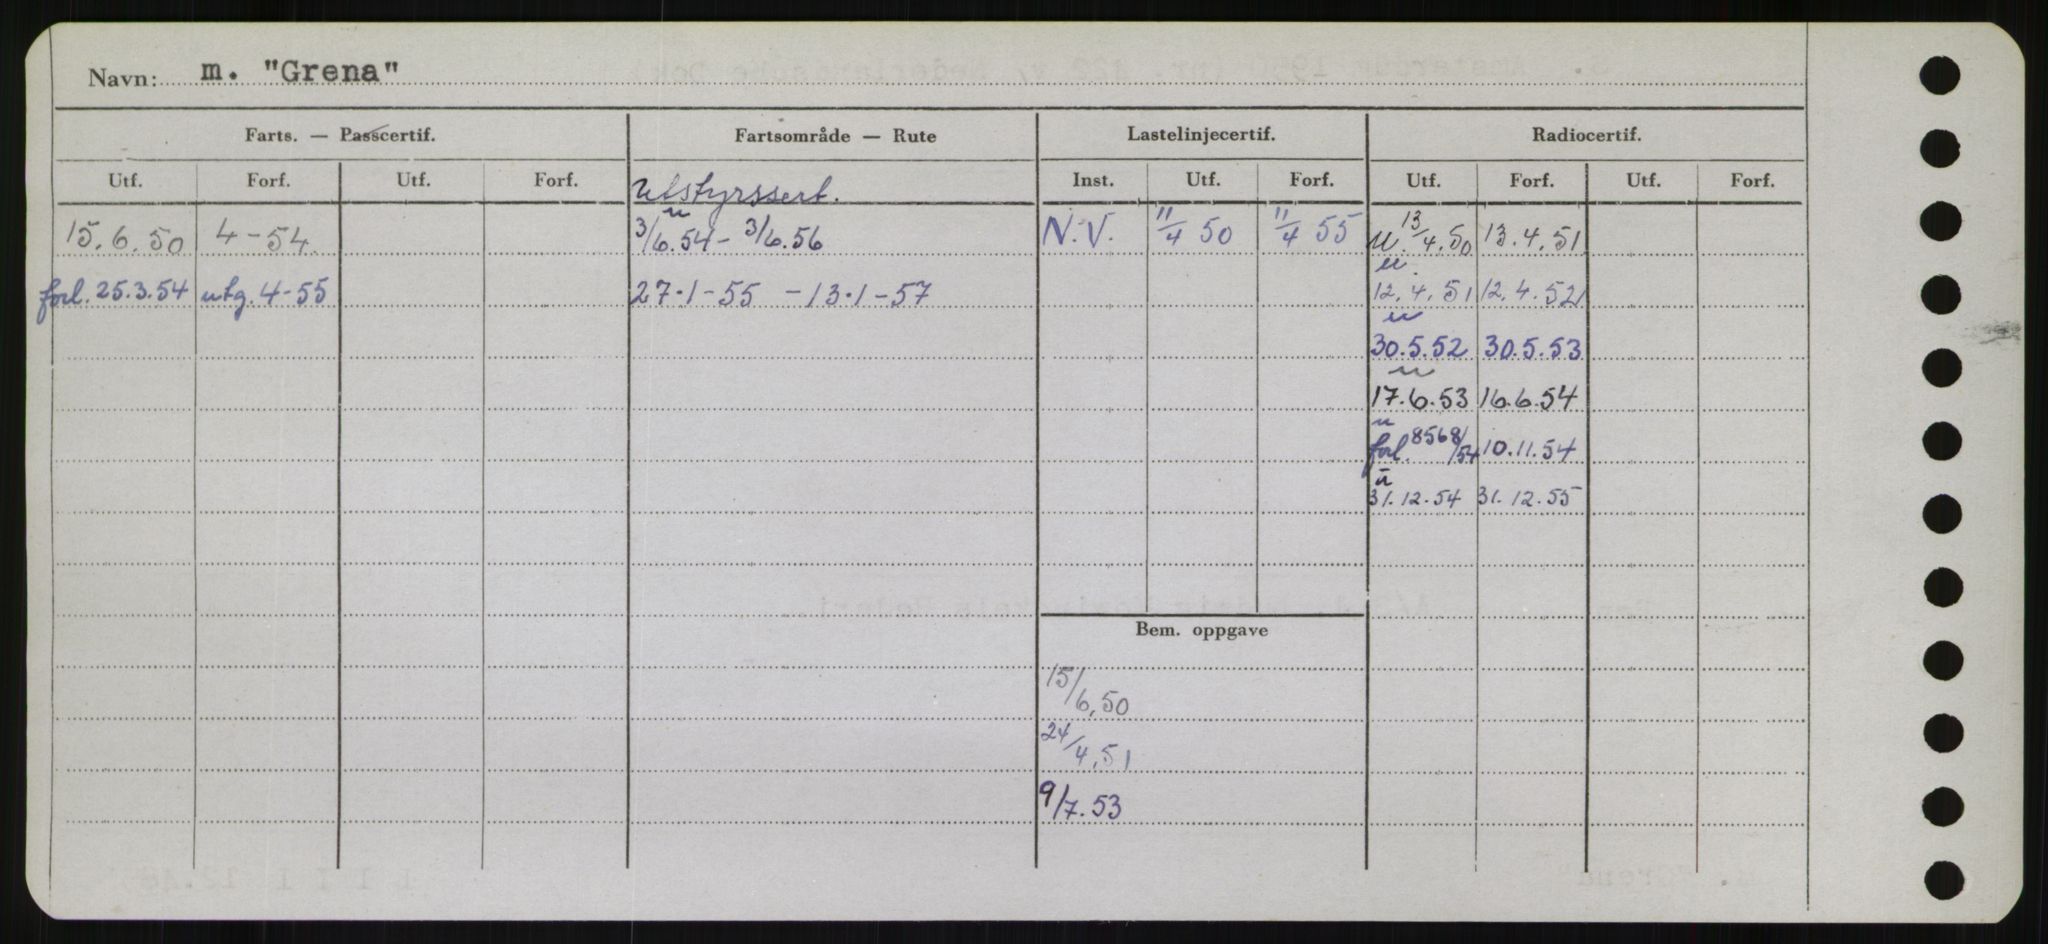 Navn: m. "Grena"
Farts. — Passcertif. Fartsområde — Rute Lastelinjecertif. Radiocertif.
Utf. Forf. Utf. Forf. Utstyrssert. Inst. Utf. Forf. Utf. Forf. Utf. Forf.
15.6.50 4-54. 3/6.54 - 3/6.56 N.V. 11/4 50 11/4 55 u. 13/4.50 13.4.51
forl. 25.3.54 utg. 4-55 27.1-55 - 13.1-57 u. 12.4.51 12.4.52
u 30.5.52 30.5.53
u 17.6.53 16.6.54
u forl. 8568/54 10.11.54
u 31.12.54 31.12.55
Bem. oppgave
15/6.50
24/4.51
9/7.53